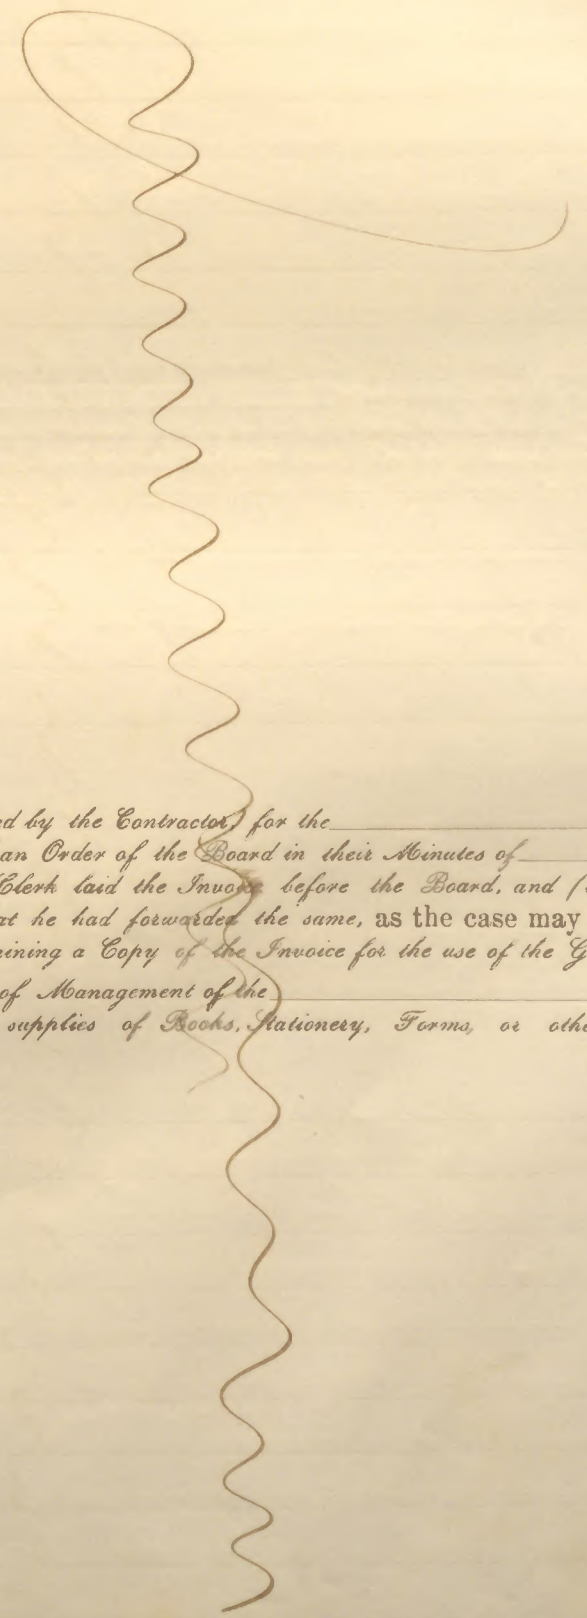 ed by the Contractor, for the
an Order of the Board in their Minutes of
Clerk laid the Invoice before the Board, and (
at he had forwarded the same, as the case may
ining a Copy of the Invoice for the use of the G
of Management of the
supplies of Books, Stationery, Forms, or othe